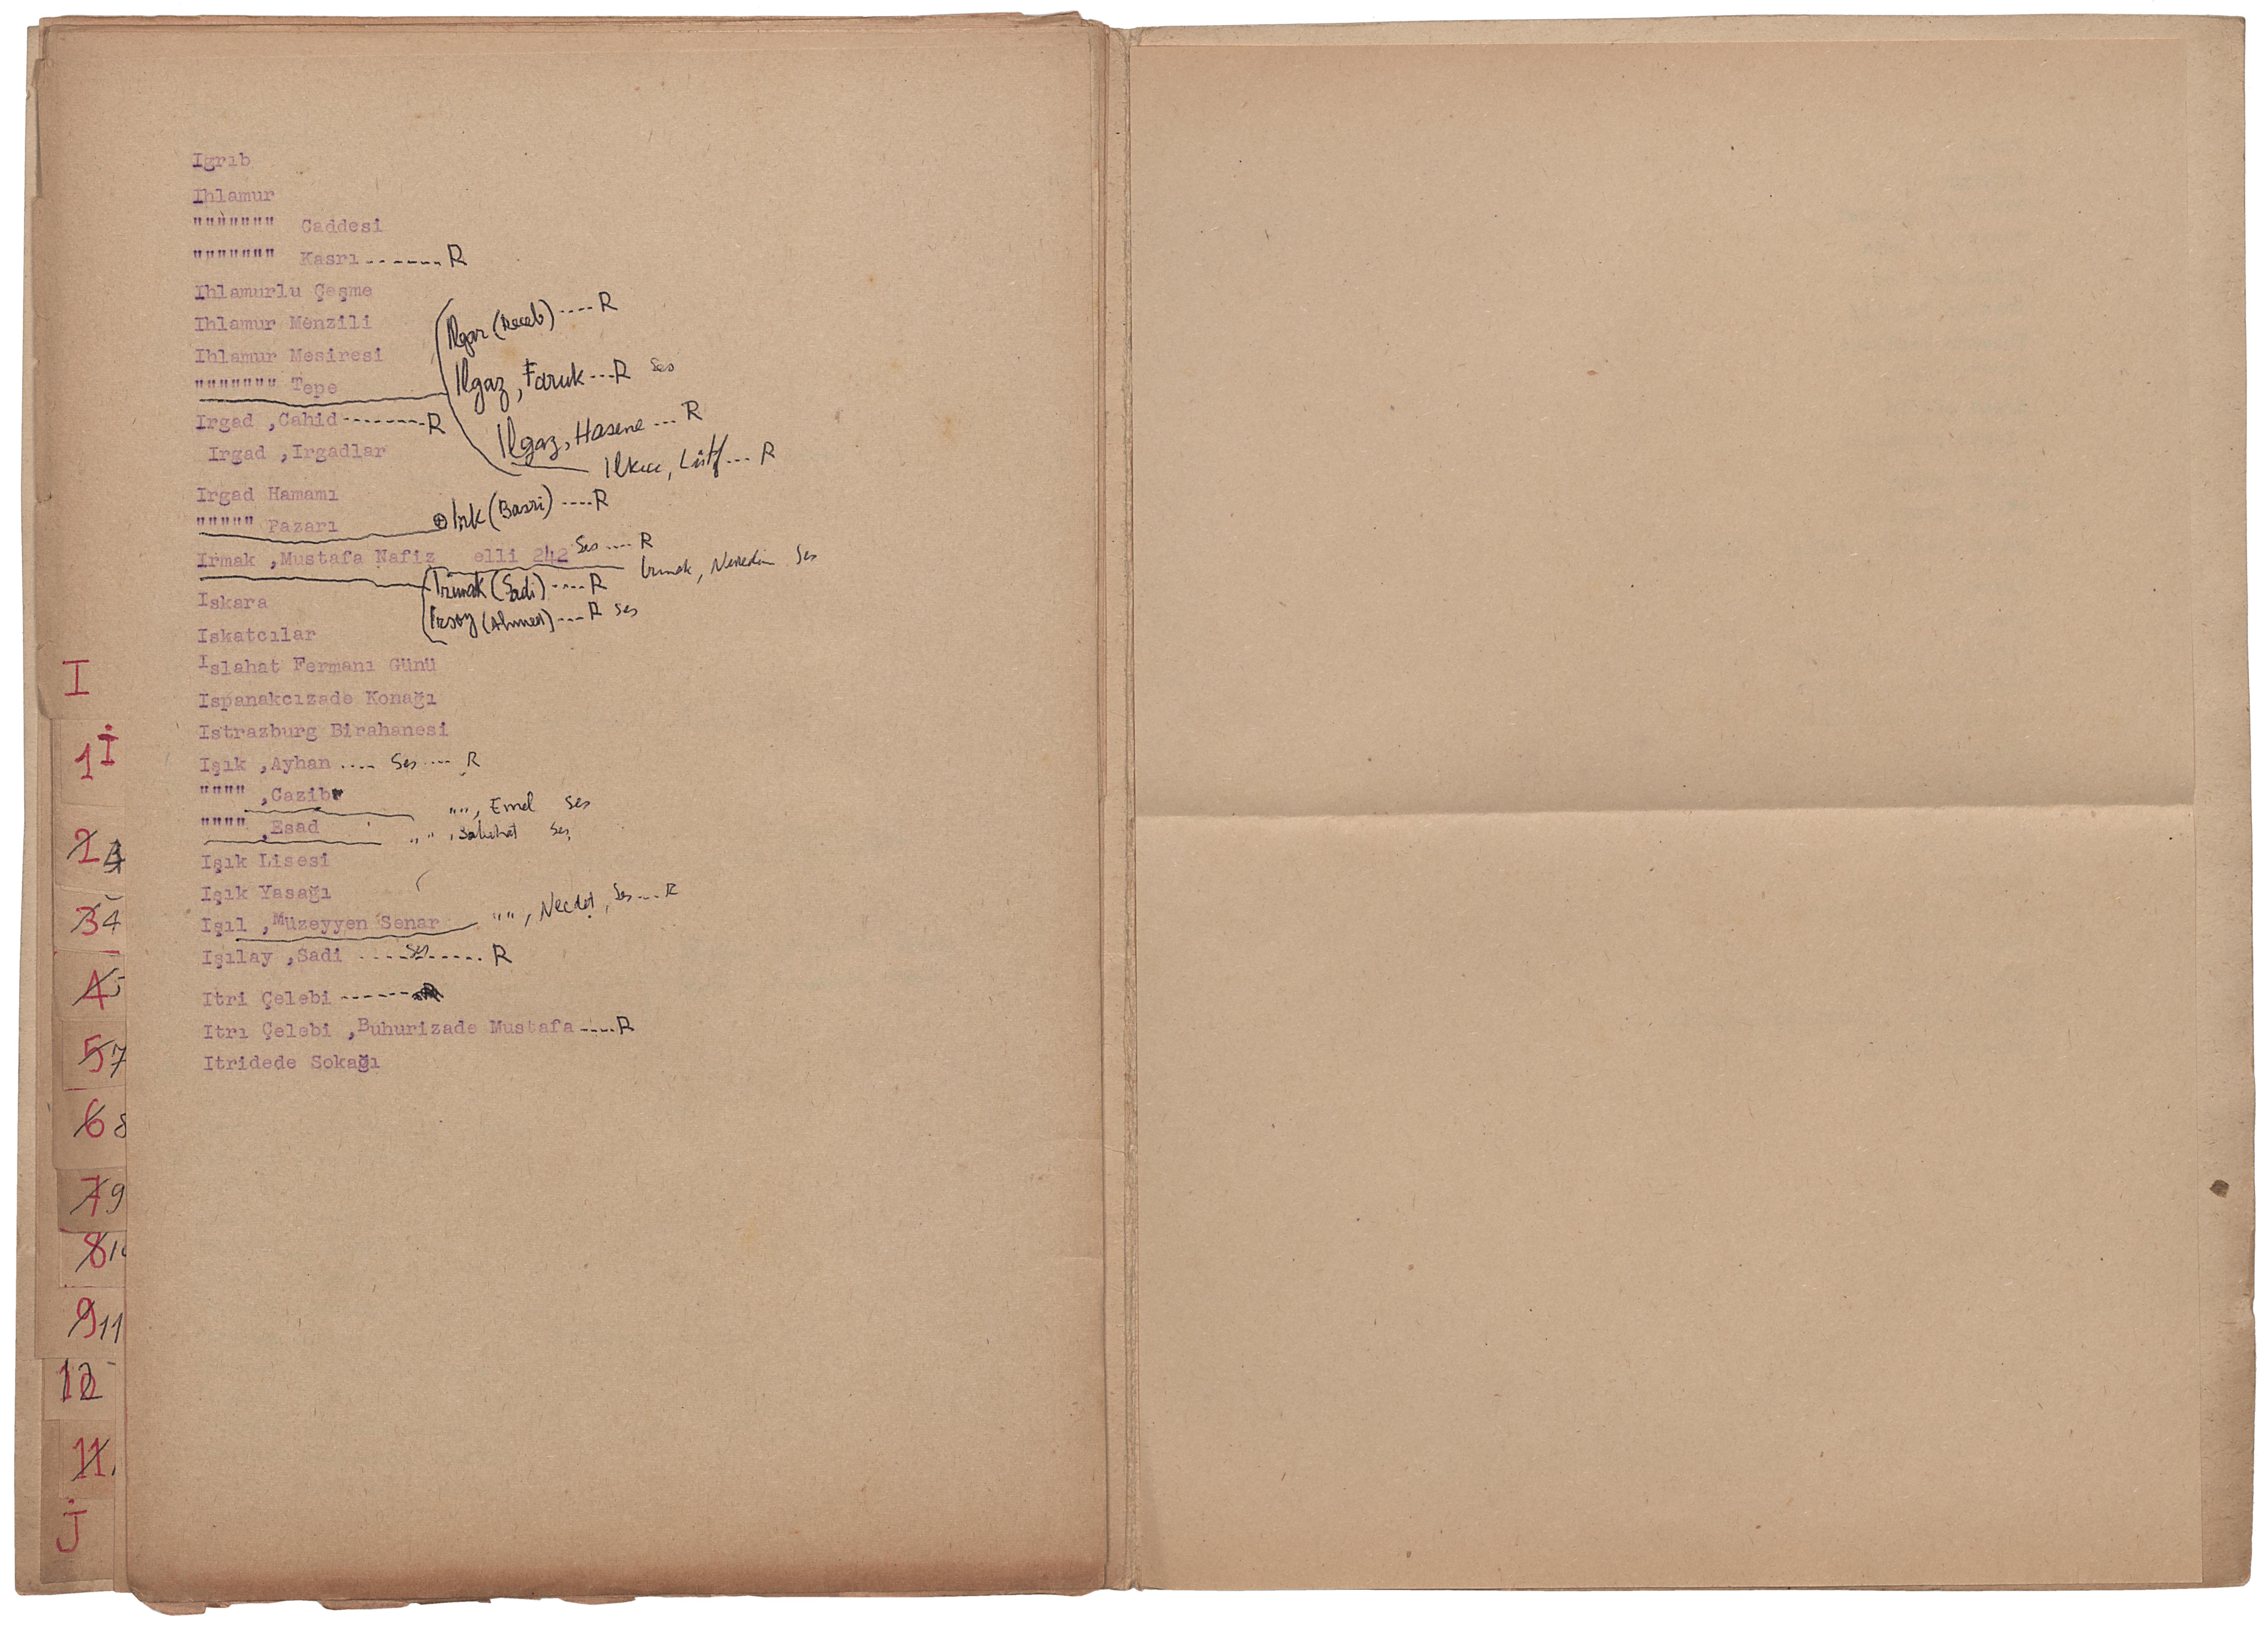 Igrıb
Ihlamur
""""""" Caddesi
""""""" Kasrı ------- R
Ihlamurlu Çeşme
Ihlamur Menzili
Ilgar (Receb) ---- R
Ihlamur Mesiresi
""""""" Tepe
Ilgaz, Faruk --- R Ses
Irgad ,Cahid -------- R
Ilgaz, Hasene --- R
Irgad ,Irgadlar
Lütf --- R
Irgad Hamamı
""""" Pazarı
Irk (Basri) ---- R
Irmak ,Mustafa Nafiz elli 242 Ses ---- R
Irmak, Ses
Irmak (Sadi) ---- R
Iskara
Irsoy (Ahmed) --- R Ses
Iskatcılar
Islahat Fermanı Günü
Ispanakcızade Konağı
Istrazburg Birahanesi
Işık ,Ayhan .... Ses .... R
"""" ,Cazibe
"", Emel Ses
"""" ,Esad
"", Sabahat Ses
Işık Lisesi
Işık Yasağı
Işıl ,Müzeyyen Senar
"", Necdet, Ses --- R
Işılay ,Sadi ---- Ses ----- R
Itri Çelebi ------- R
Itrı Çelebi ,Buhurizade Mustafa ---- R
Itridede Sokağı
I
1 İ
2
3 4
4 5
5 7
6 8
7 9
8 10
9 11
12
11
J